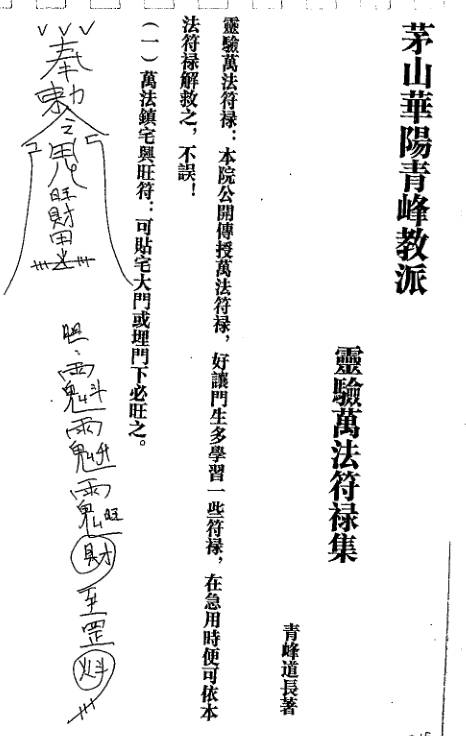 茅山華陽青峰教派
靈驗萬法符禄集
青峰道長著
靈驗萬法符禄：本院公開傳授萬法符禄，好讓門生多學習一些符禄，在急用時便可依本
法符禄解救之，不誤！
（一）萬法鎮宅興旺符：可貼宅大門或埋門下必旺之。
奉勅令
旺財
旺財
罡